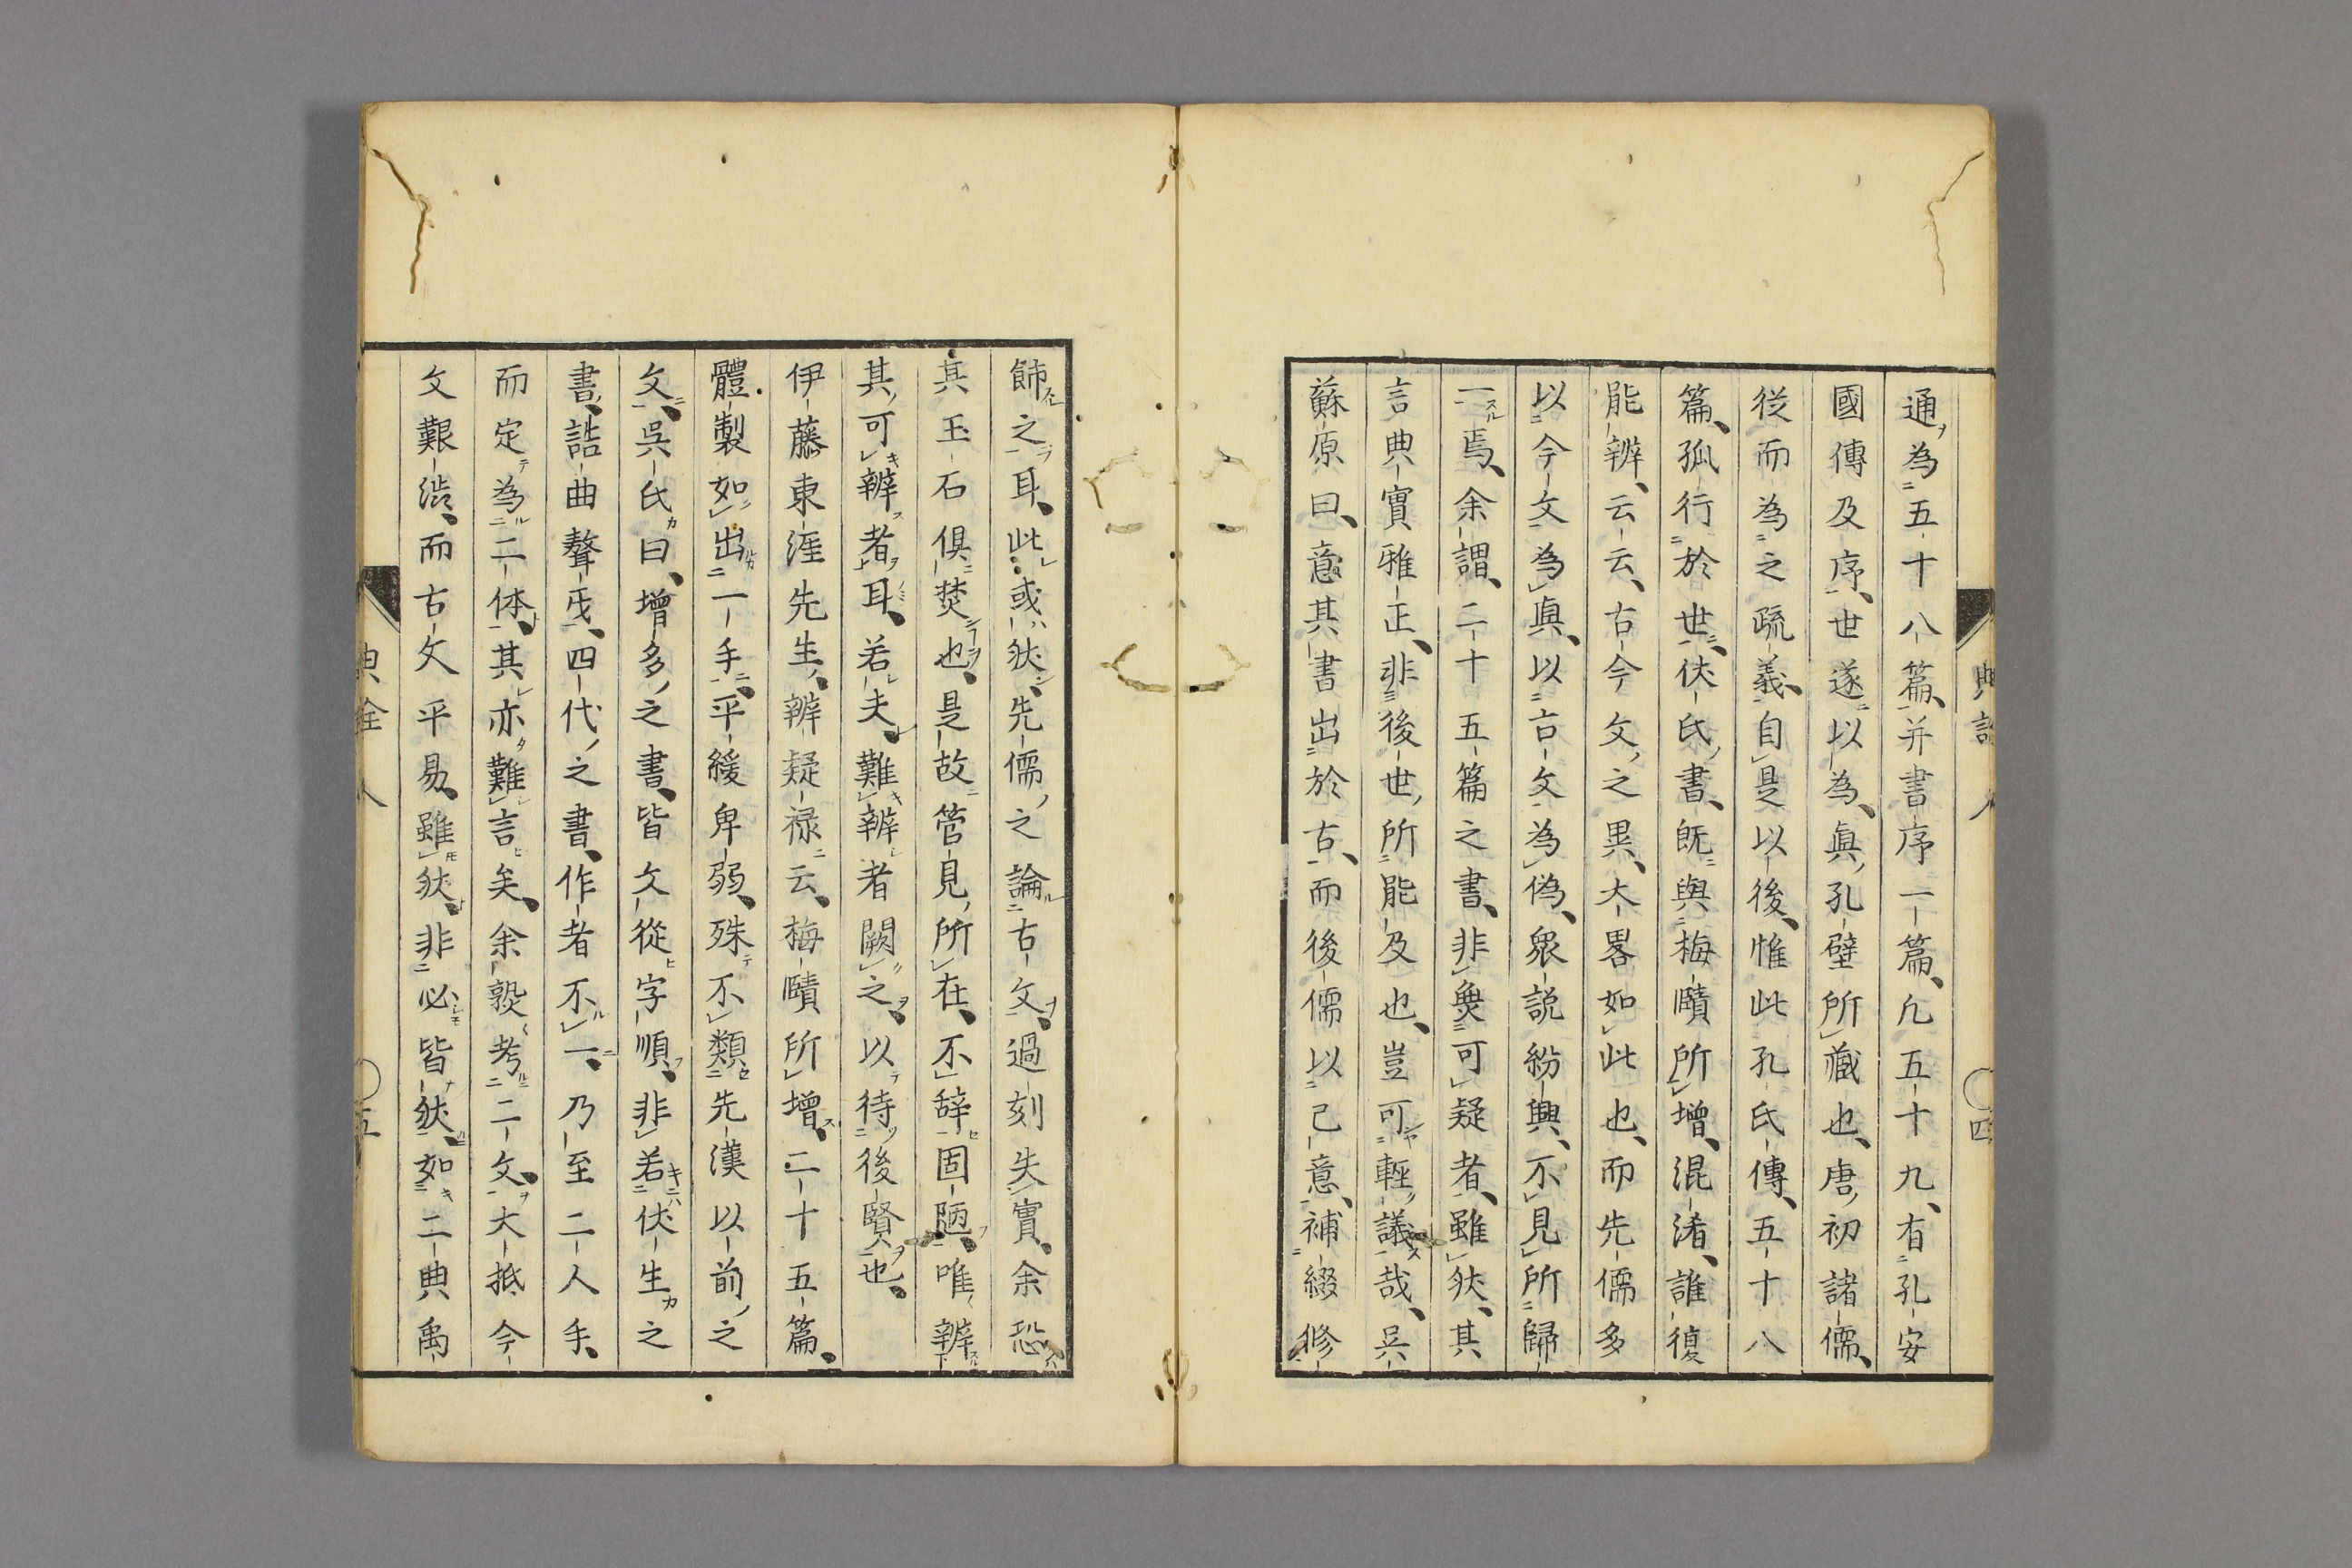 通為五十八篇并書序一篇凢五十九有孔安
國傳及序世遂以為真孔壁所藏也唐初諸儒
從而為之疏義自是以後惟此孔氏傳五十八
篇孤行於世伏氏書既與梅賾所增混淆誰復
能辨云云古今文之異大畧如此也而先儒多
以今文為真以古文為偽衆説紛興不見所歸
一焉余謂二十五篇之書非無可疑者雖然其
言典實雅正非後世所能及也豈可輕議哉吳
蘇原曰意其書出於古而後儒以己意補綴修
飾之耳此或然先儒之論古文過刻失實余恐
其玉石俱焚也是故管見所在不辞固陋唯辨
其可辨者耳若夫難辨者闕之以待後賢也
伊藤東涯先生辨疑祿云梅賾所増二十五篇
體製如出一手平緩卑弱殊不類先漢以前之
文吳氏曰增多之書皆文從字順非若伏生之
書詰曲聱牙四代之書作者不一乃至二人手
而定為二体其亦難言矣余熟考二文大抵今
文艱澁而古文平易雖然非必皆然如二典禹